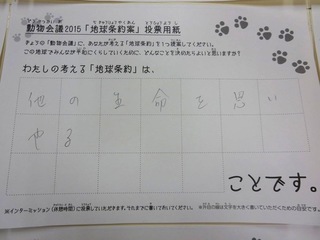 動物会議2015「地球条約案」投票用紙
きょうの「動物会議」に、あなたが考える「地球条約」を1つ提案してください。
この地球でみんなが平和にくらしていくために、どんなことを決めたらよいと思いますか?
わたしの考える「地球条約」は、
他の生命を思い
やる
ことです。
※インターミッション(休憩時間)に投票していただきます。